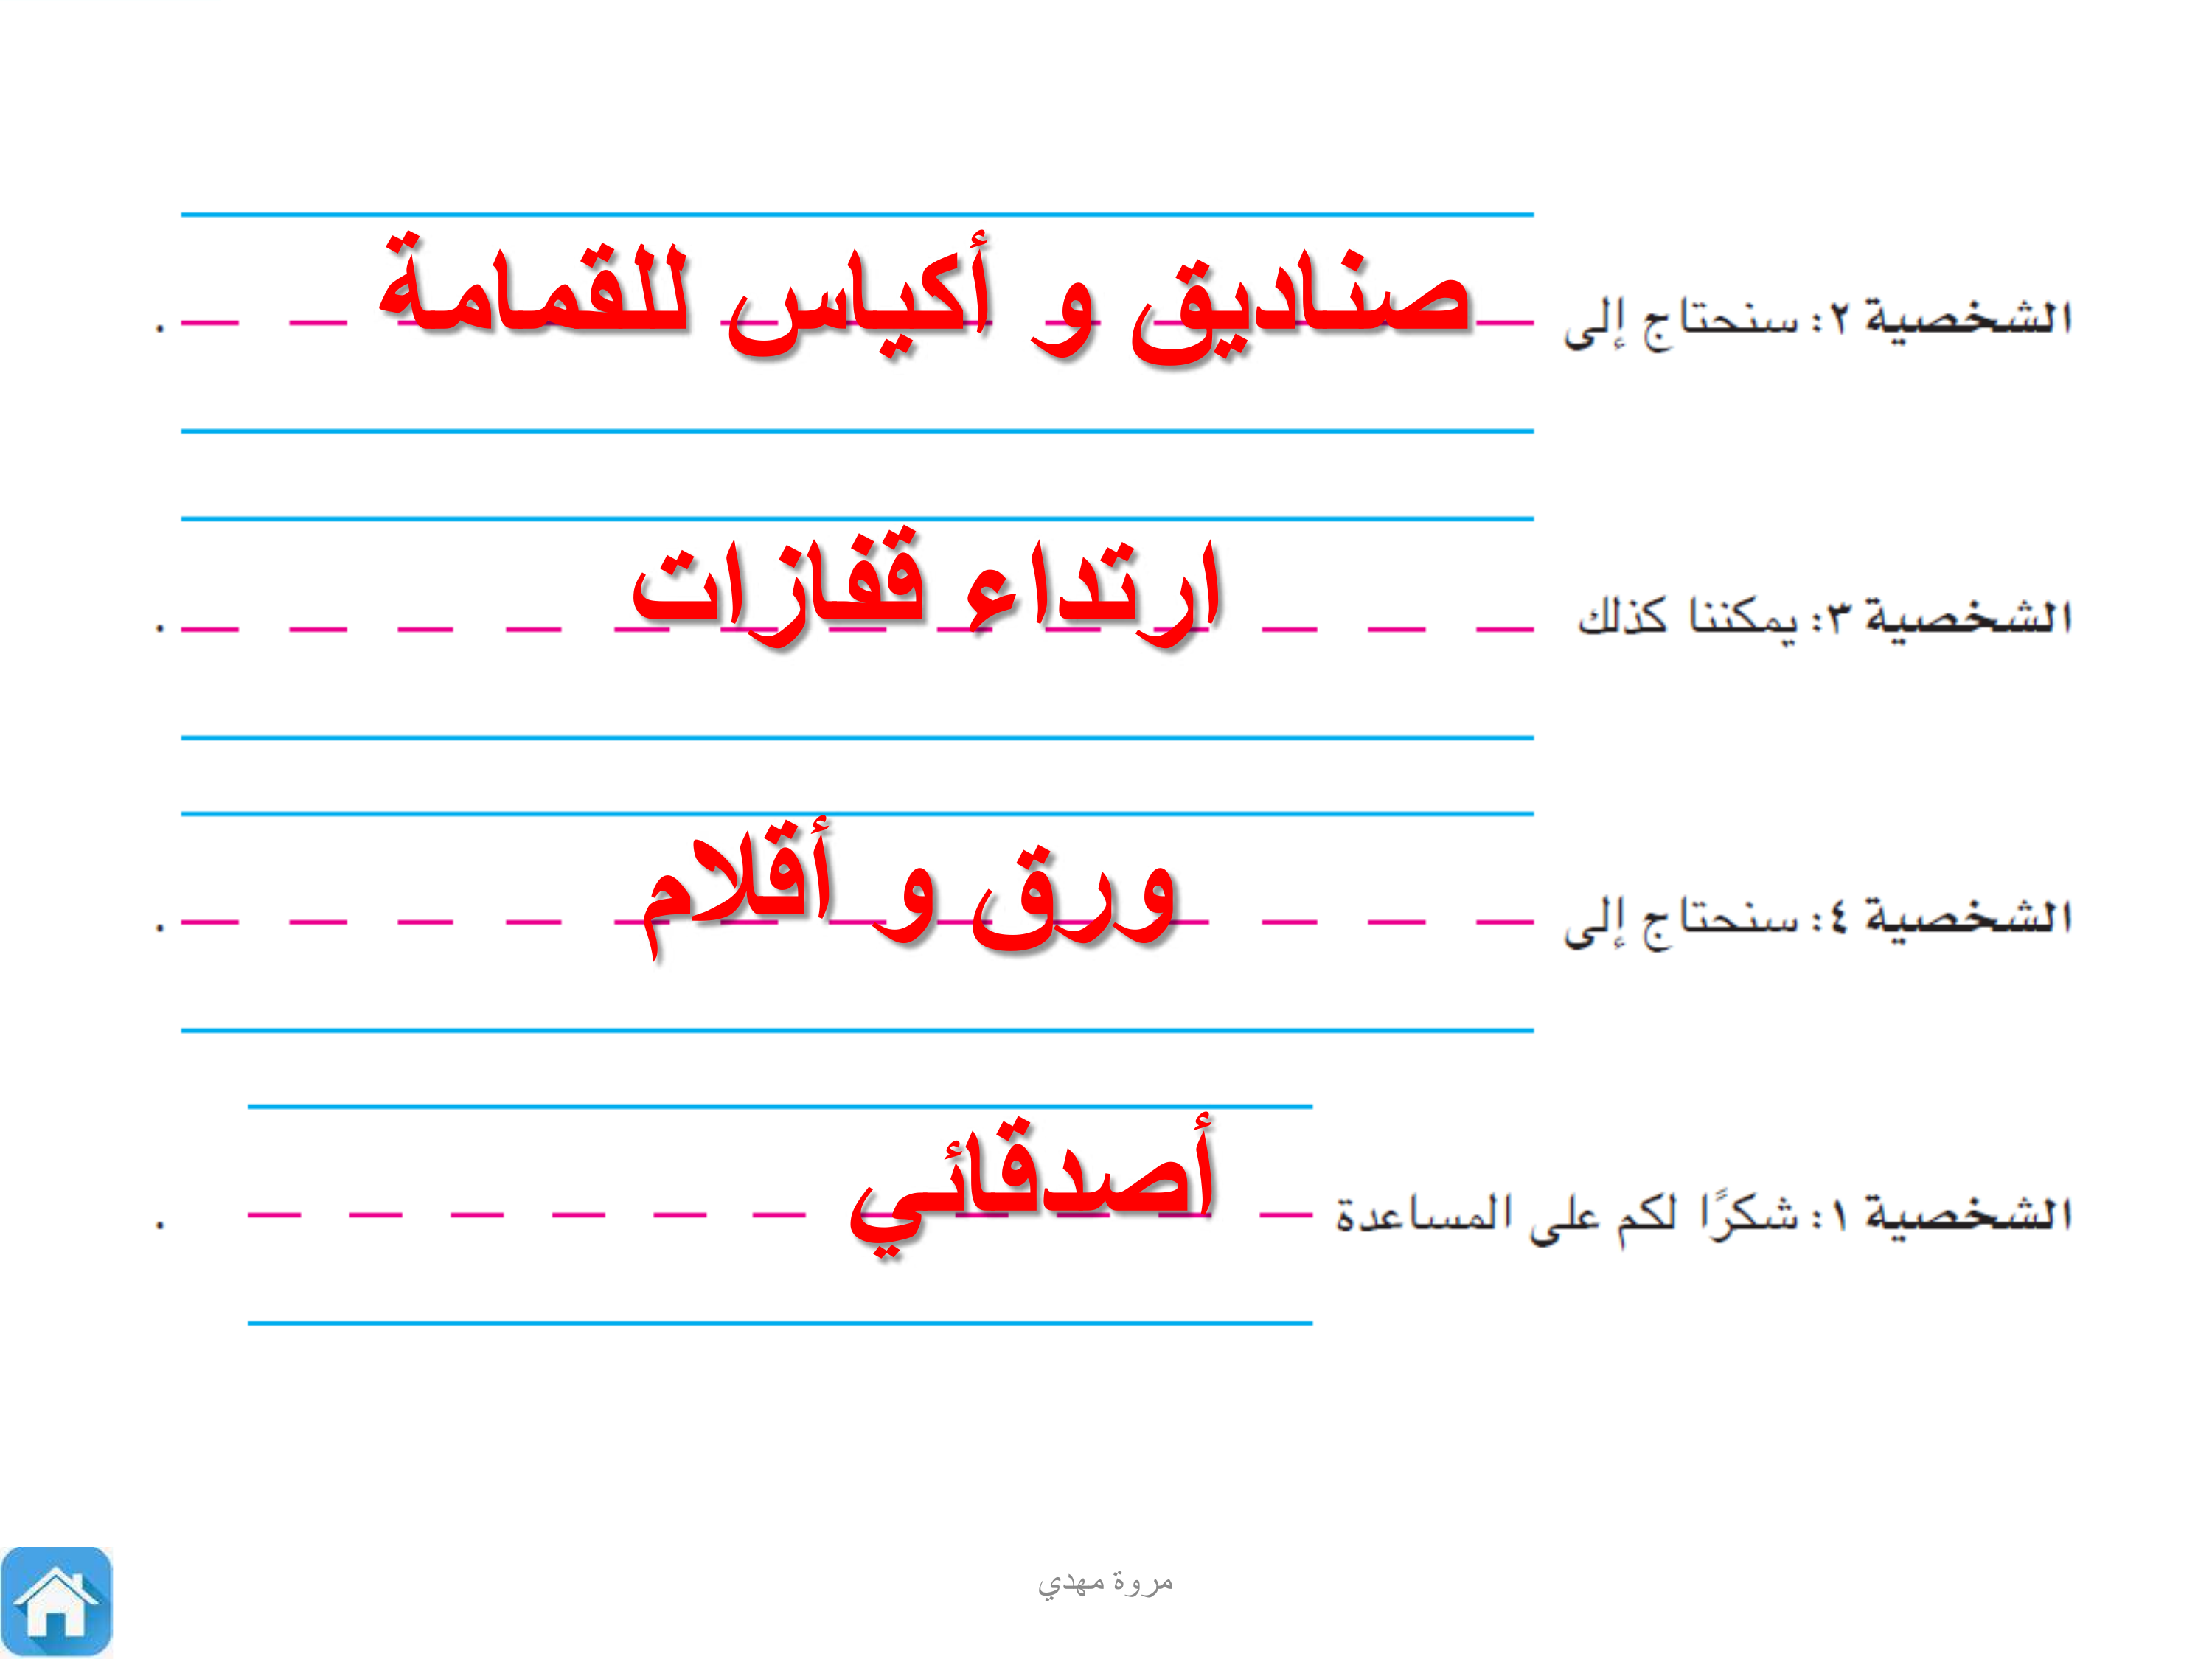 الشخصية ٢: سنحتاج إلى صناديق و أكياس للقمامة .
الشخصية ٣: يمكننا كذلك ارتداء قفازات .
الشخصية ٤: سنحتاج إلى ورق و أقلام .
الشخصية ١: شكرًا لكم على المساعدة أصدقائي .
مروة مهدي